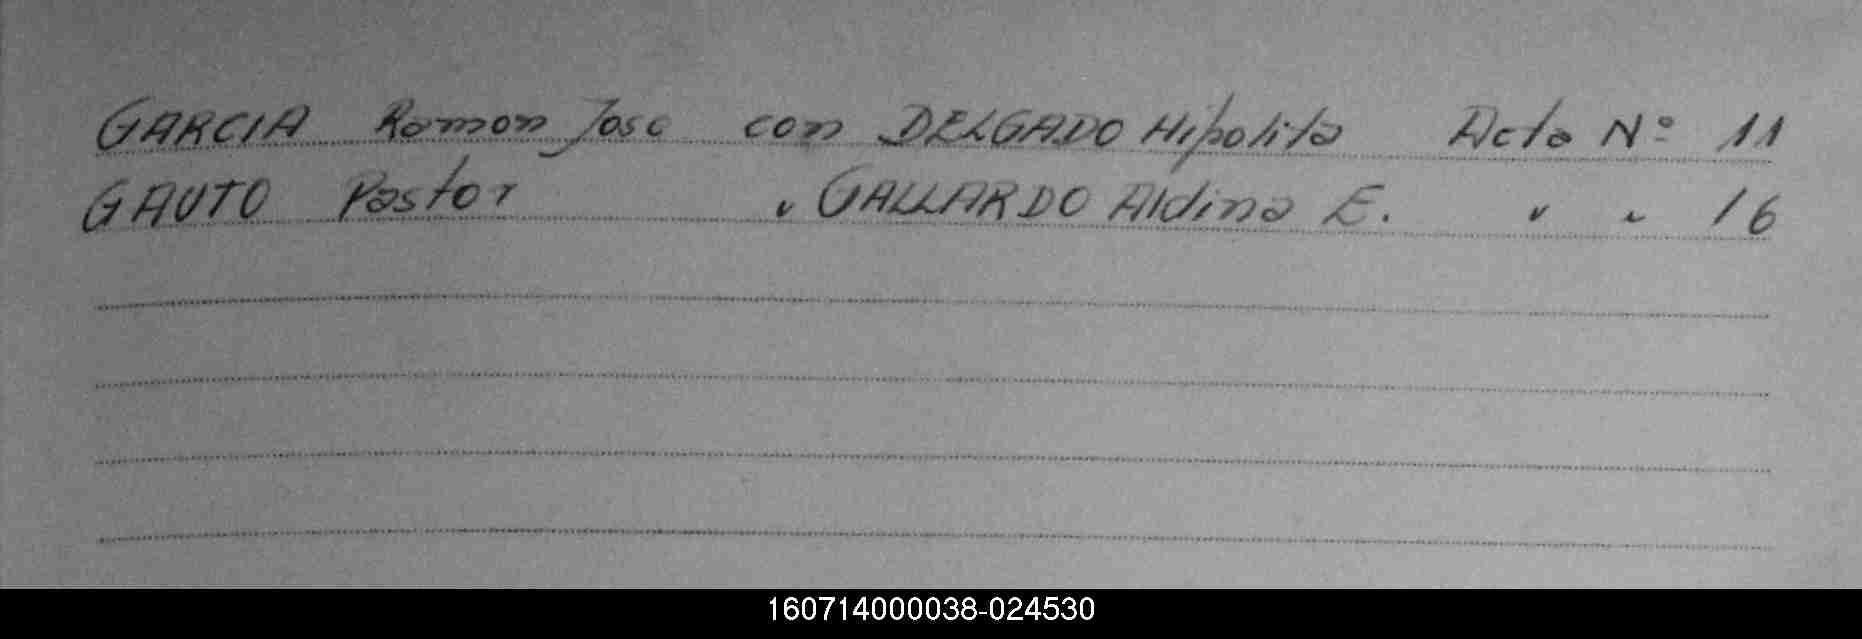 GARCIA Ramon Jose con DELGADO Hipolita Acta Nº 11
GAUTO Pastor " GALLARDO Aldina E. " " 16
160714000038-024530